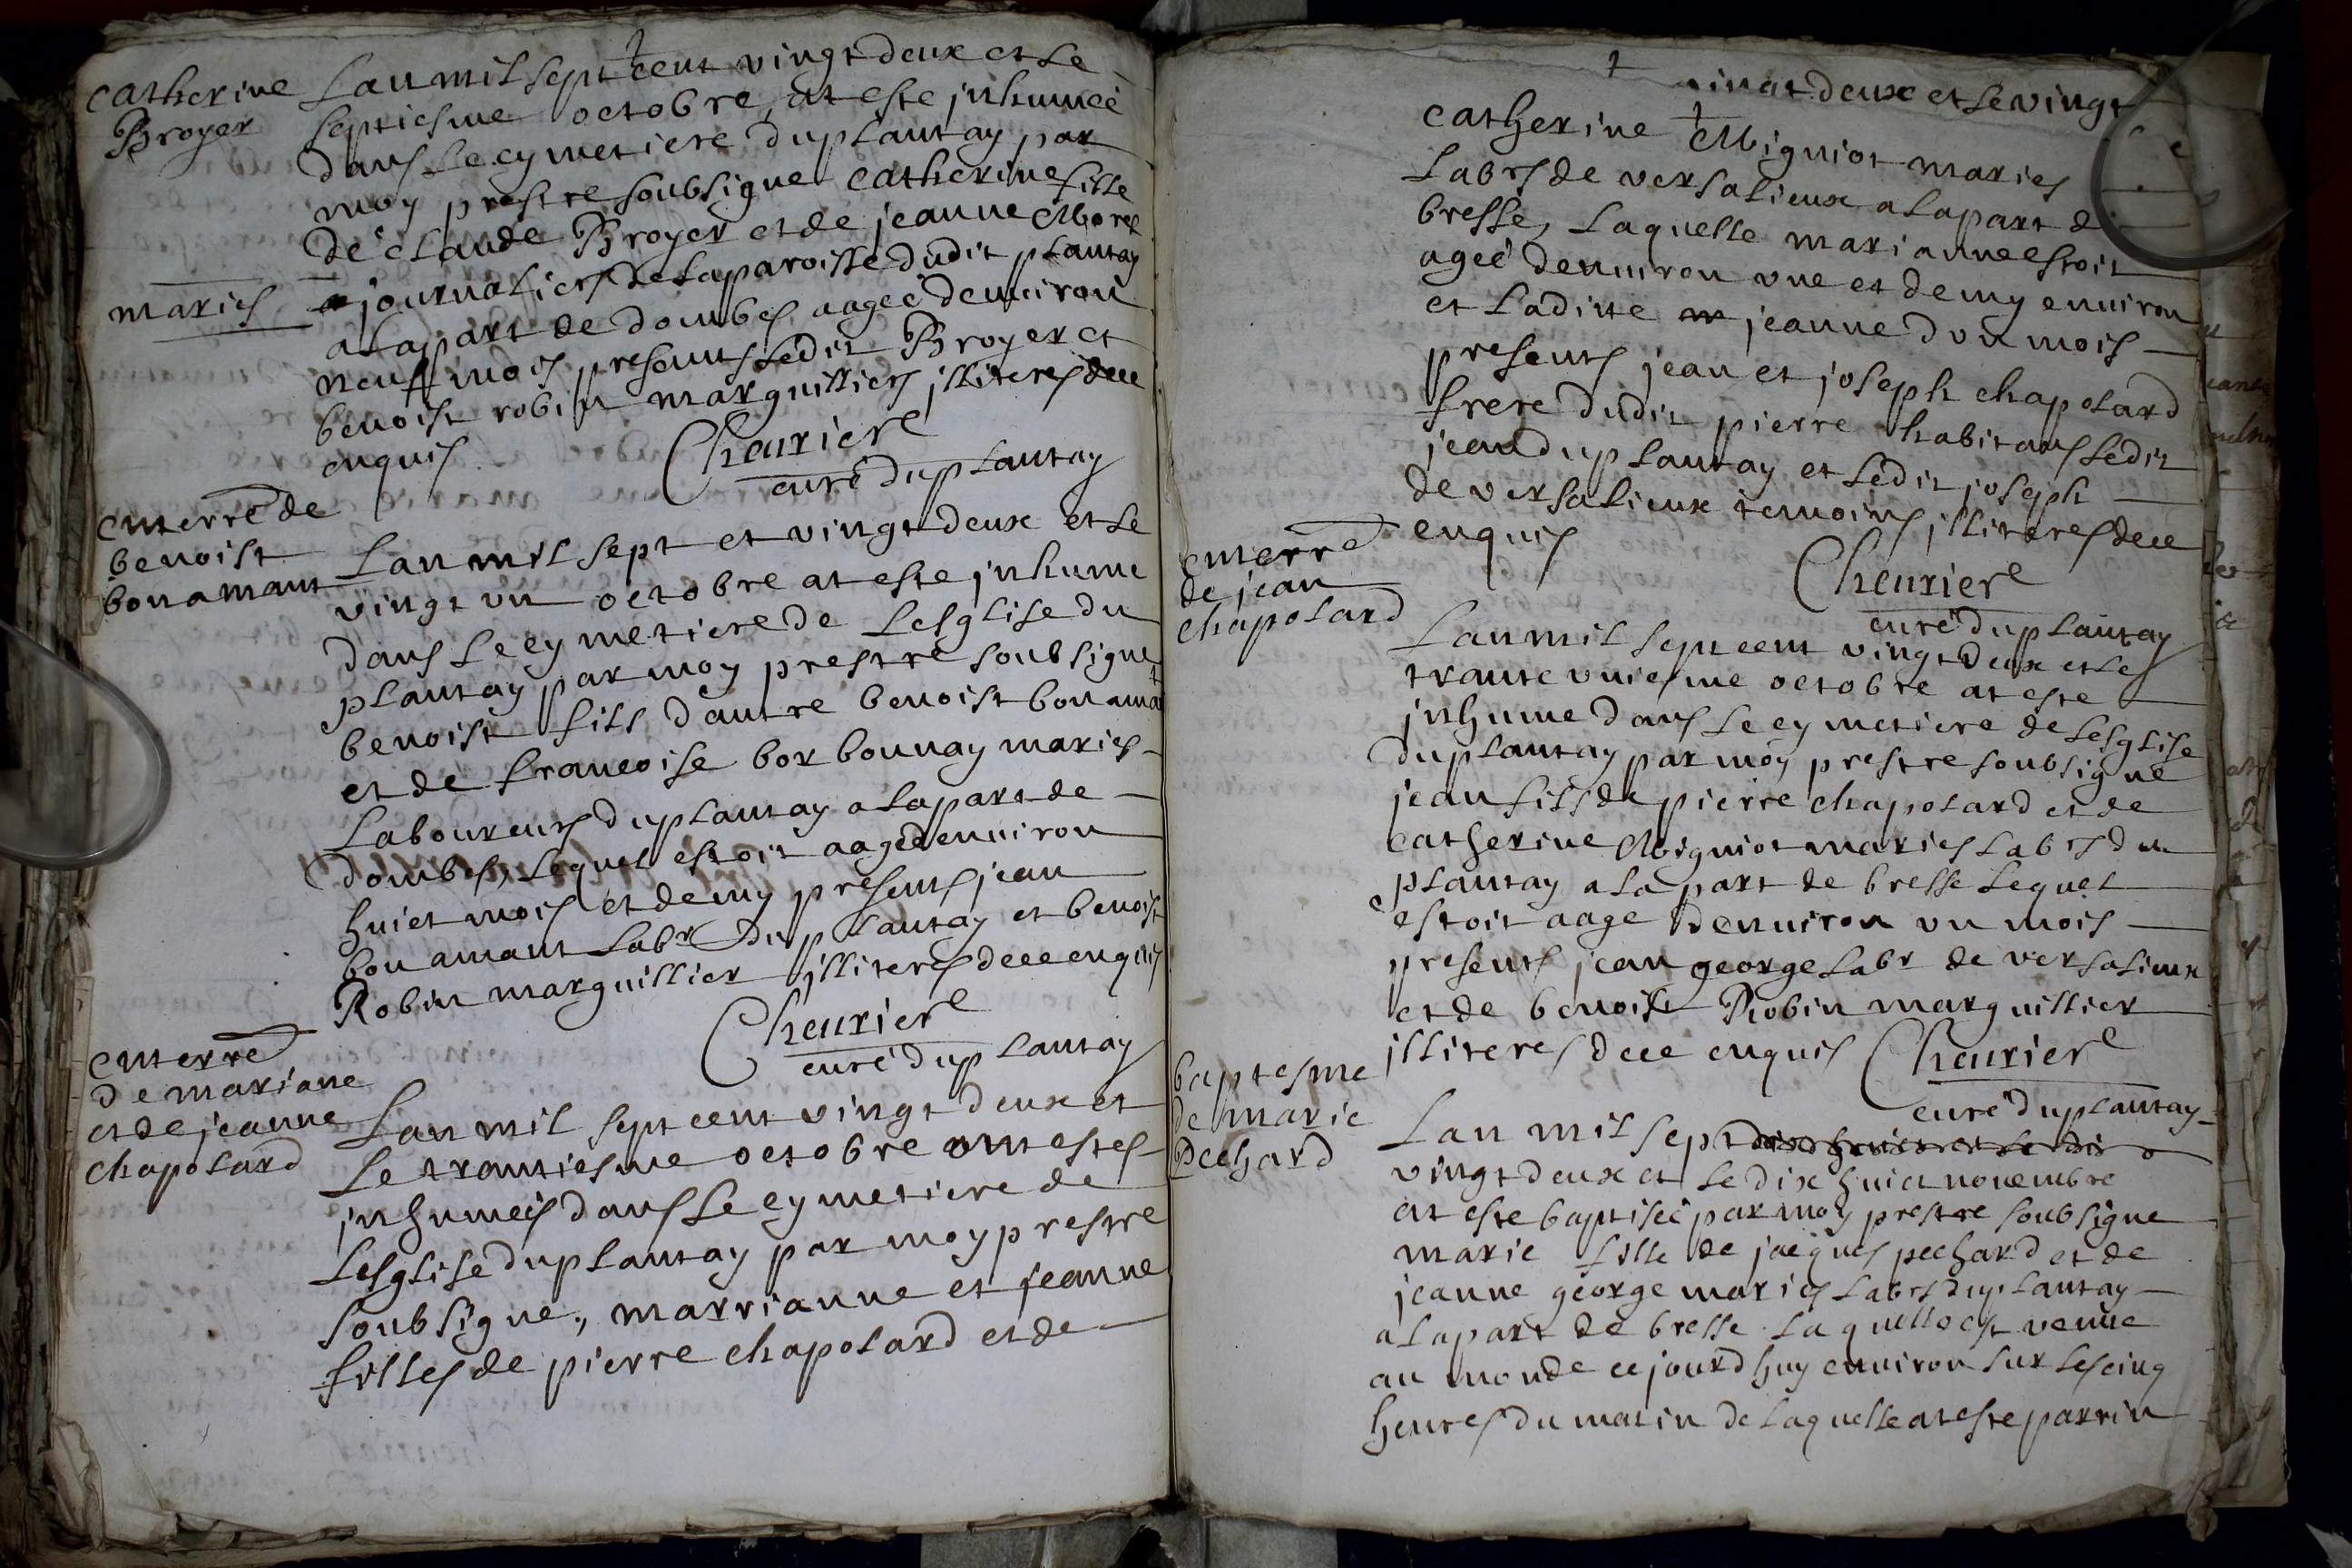 catherine
Broyer
Lan mil sept cent vingt deux et le
septiesme octobre, at este jnhumeé
dans le cymetiere du plantay par
moy prestre soubsigne catherine fille
de claude Broyer et de jeanne Morel
maries
journaliers de la paroisse dudit plantay
a la part de dombes aageé denuiron
neuff mois presents ledit Broyer et
benoist robin marguilliers jlliteres dece
enquis
Cheuriere
curé du plantay
enterré de
benoist
bonamant
Lan mil sept et vingt deux et le
vingt vn octobre at este jnhume
dans le cymetiere de Lesglise du
plantay par moy prestre soubsigne
benoist fils dautre benoist bonama
et de francoise borbounay maries
Laboureurs du plantay a la part de
dombes, lequel estoit aagé denuiron
huict mois et demy presents jean
bonamant labr du plantay et benoist
Robin marguillier jlliteres dece enquis
Cheuriere
curé du plantay
enterré
de mariane
et de jeanne
chapolard
Lan mil sept cent vingt deux et
Le trantiesme octobre ont estes
jnhumeés dans le cymetiere de
Lesglise du plantay par moy prestre
soubsigne, marrianne et jeanne
filles de pierre chapolard et de
vingt deux et le vingt
catherine Migniot maries
Labrs de versalieux a la part d
bresse, Laquelle marianne estoit
ageé denuiron vne et demy enuiron
et Laditte jeanne dvn mois
presents jean et joseph chapolard
frere dudit pierre habitans ledit
jean du plantay et ledit joseph
de versalieux temoins jlliteres dece
enquis
Cheuriere
curé du plantay
enterré
de jean
chapolard
Lan mil sept cent vingt deux et le
trante vniesme octobre at este
jnhume dans le cymetiere de Lesglise
du plantay par moy prestre soubsigné
jean fils de pierre chapolard et de
catherine Migniot maries Labrs du
plantay a la part de bresse Lequel
estoit aage denuiron vn mois
presents jean george Labr de versalieux
et de benoist Robin marguillier
jlliteres dece enquis Cheuriere
curé du plantay
baptesme
de marie
Pechard
Lan mil sept dixs huict et le dis
vingt deux et le dix huict nouembre
at este baptiseé par moy prestre soubsigne
marie fille de jacques pechard et de
jeanne george maries Labrs du plantay
a la part de bresse Laquelle est venue
au monde ce jourdhuy enuiron sur les cinq
heures du matin de laquelle at este parrin